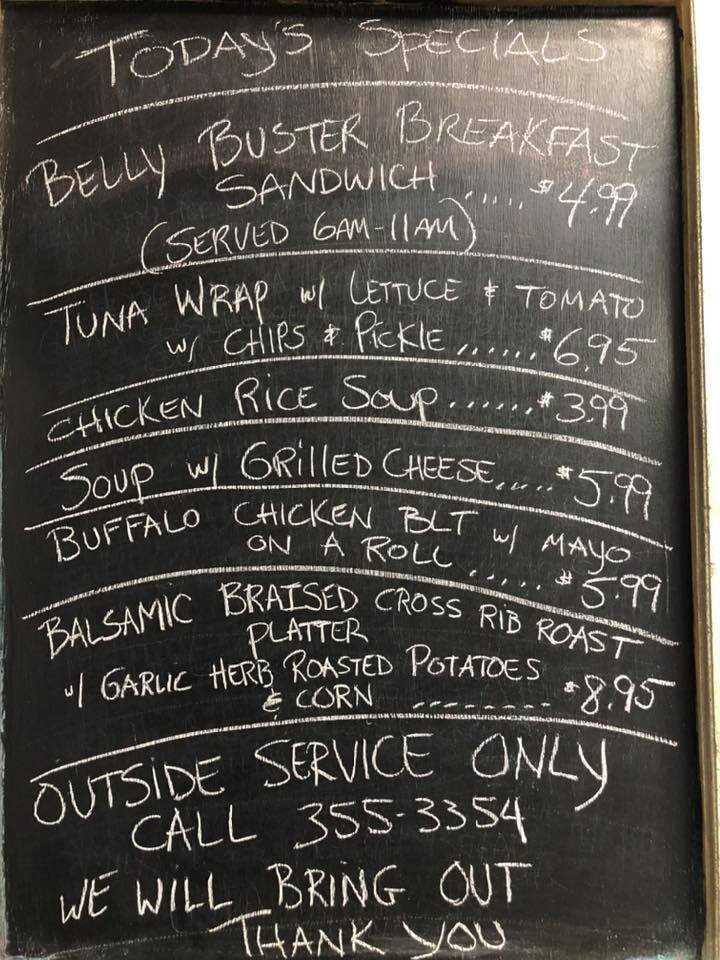 TODAY'S SPECIALS
BELLY BUSTER BREAKFAST
SANDWICH ..... $4.99
(SERVED 6AM-11AM)
TUNA WRAP w/ LETTUCE & TOMATO
w/ CHIPS & PICKLE ...... $6.95
CHICKEN RICE SOUP ...... $3.99
SOUP w/ GRILLED CHEESE ..... $5.99
BUFFALO CHICKEN BLT w/ MAYO
ON A ROLL ..... $5.99
BALSAMIC BRAISED CROSS RIB ROAST
PLATTER
w/ GARLIC HERB ROASTED POTATOES
& CORN --------- $8.95
OUTSIDE SERVICE ONLY
CALL 355-3354
WE WILL BRING OUT
THANK YOU